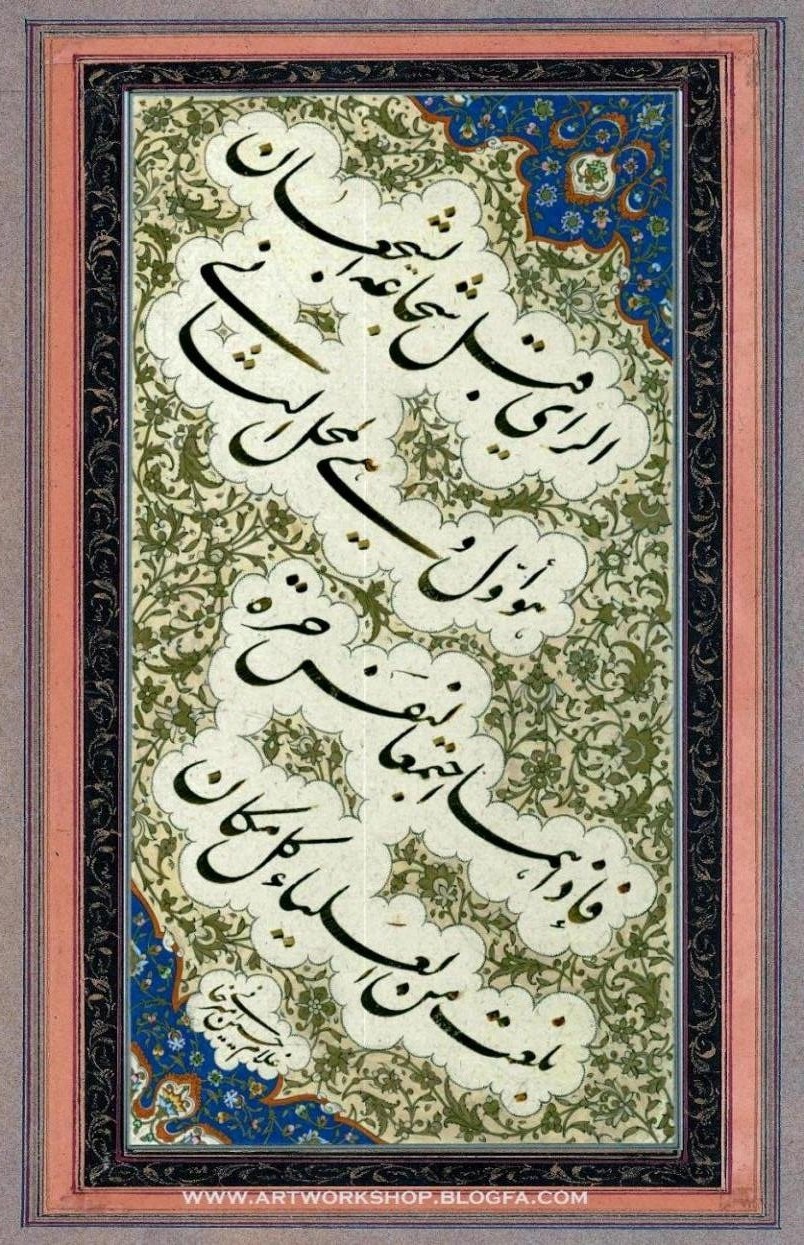 الرای قبل شجاعة الشجعان
هو أوّل و هی المحل الثانی
فإذا هما اجتمعا لنفس حرة
بلغت من العلیاء کل مکان
غلامحسین امیرخانی
WWW.ARTWORKSHOP.BLOGFA.COM